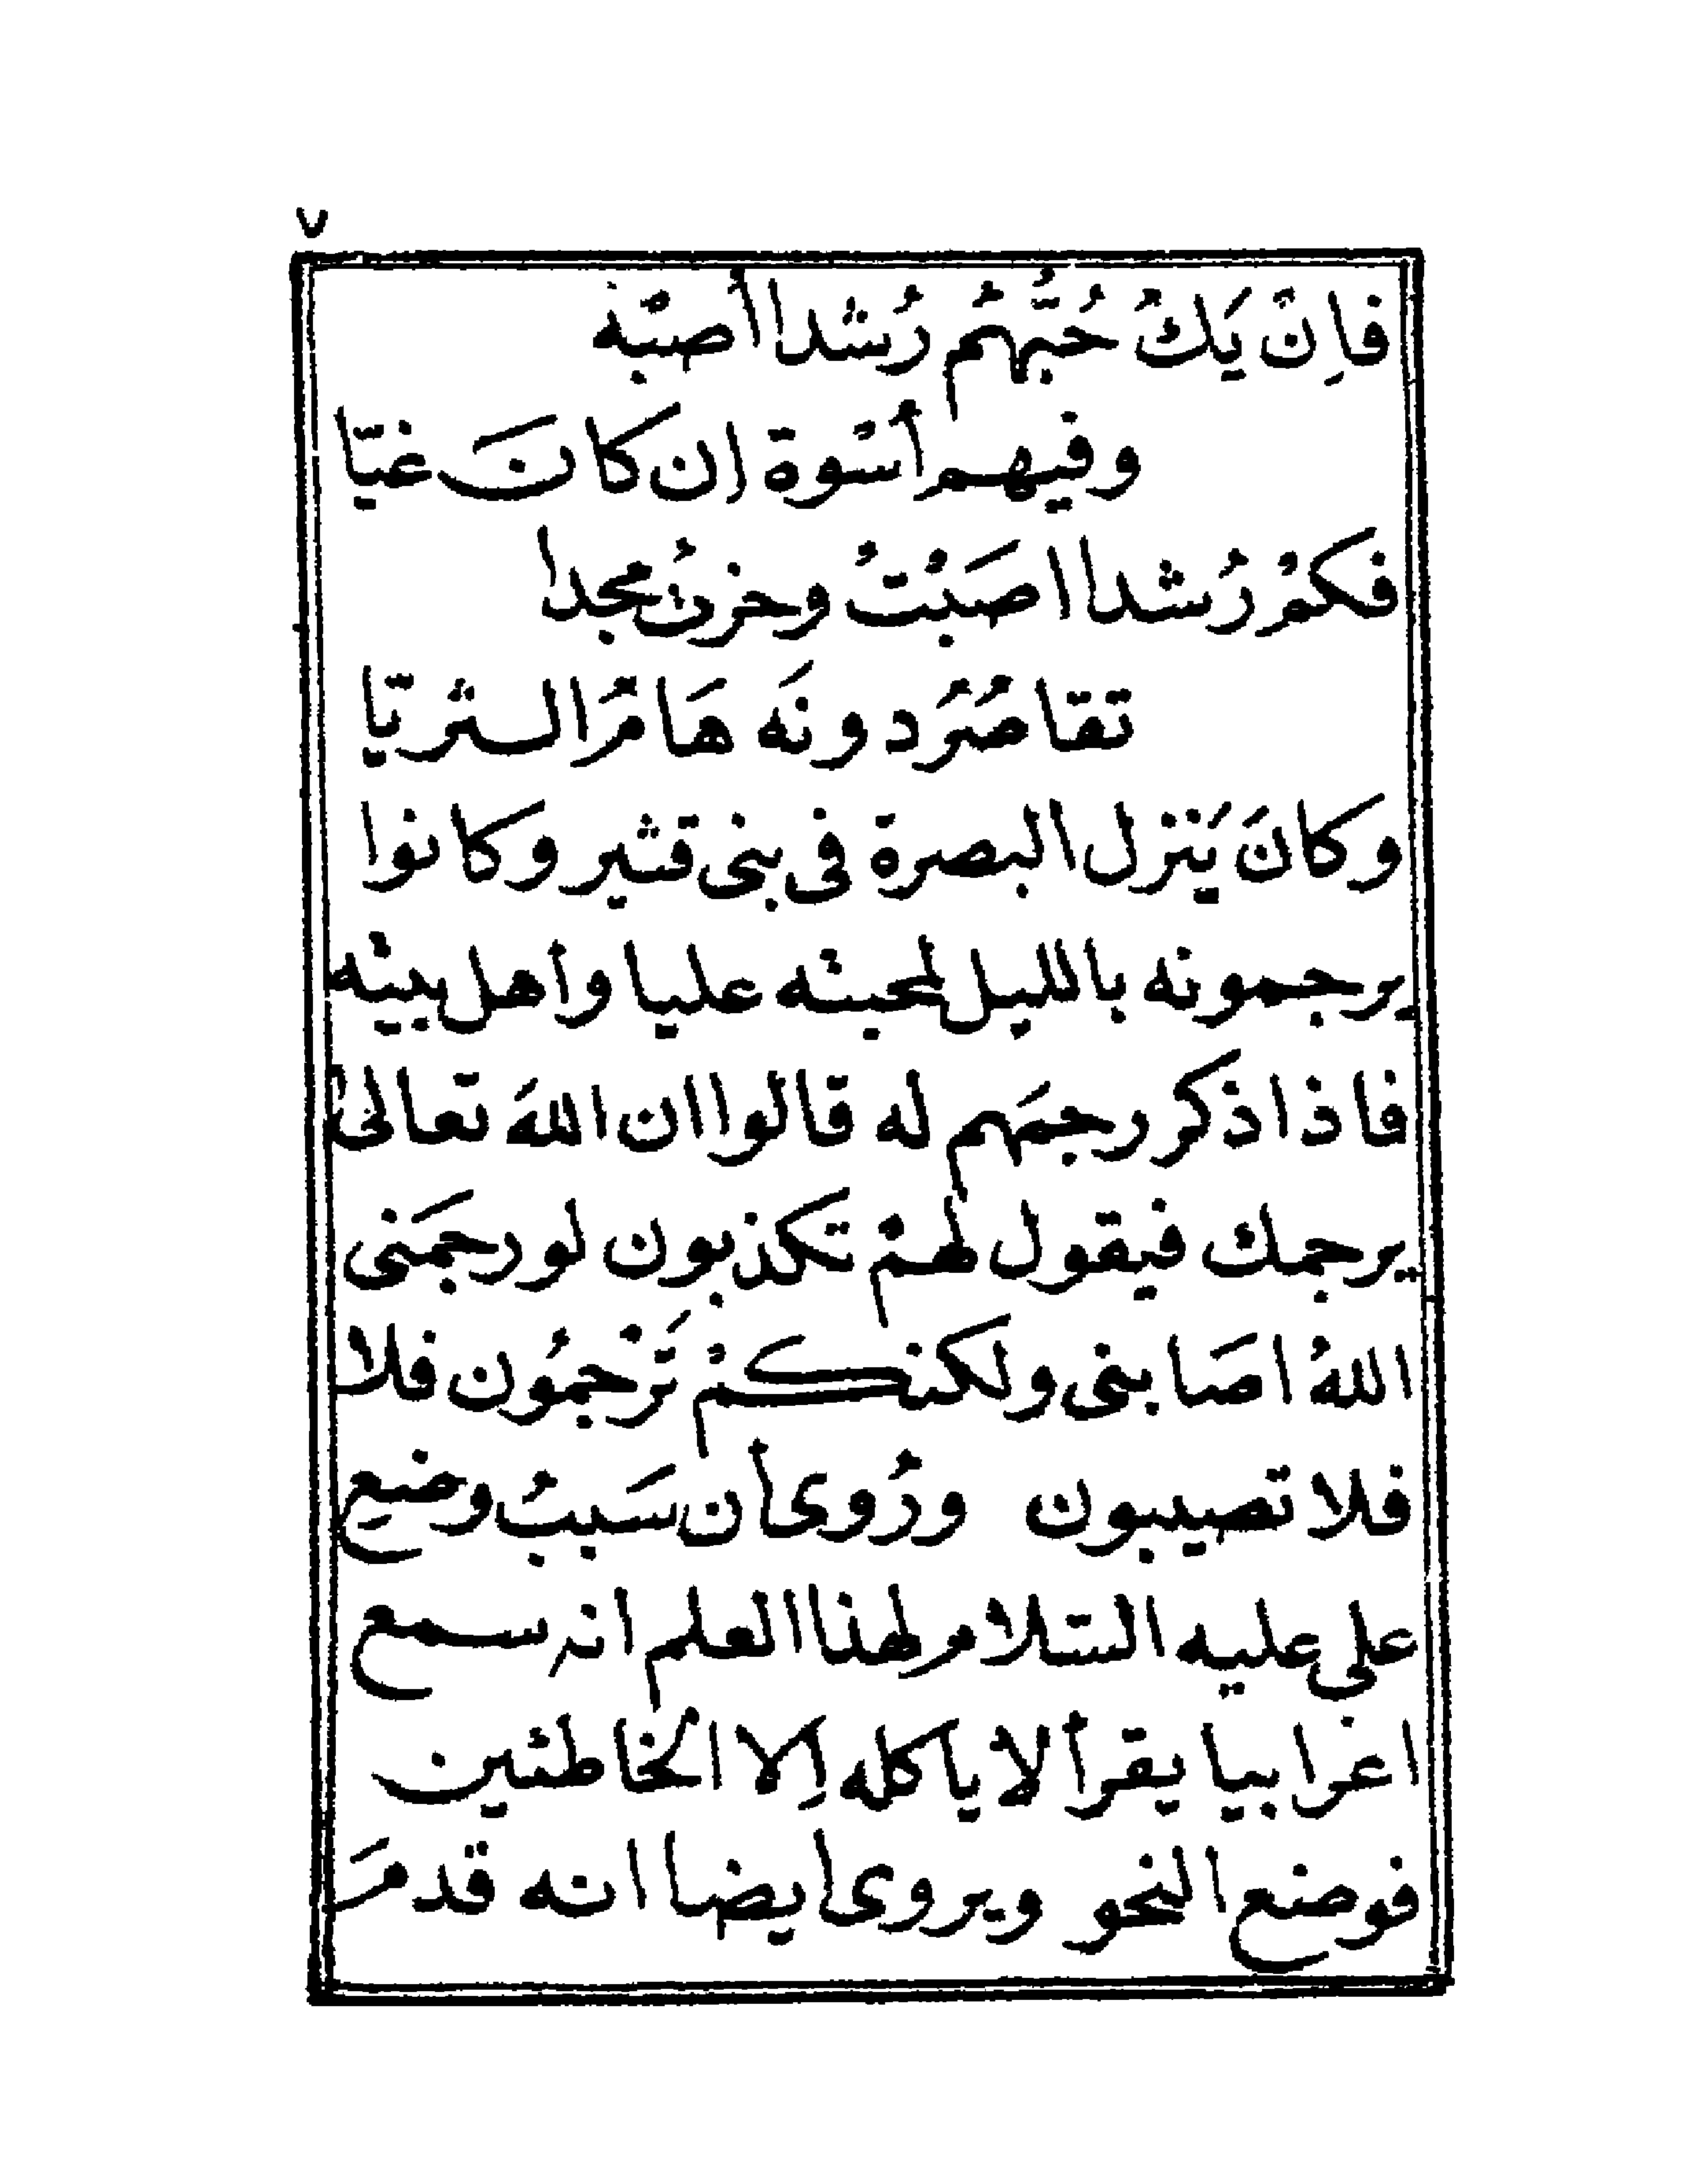 ٧
فاِنْ يَكُ حُبُّهُمْ رُشدا أصبْه
وفيهم أسْوة إن كانَ غيّا
فكمْ رُشدا اصَبْتُ وحزتُ مجدا
تقاصُرَ دونَه هَامُ الثريّا
وكانَ يَنزل البصرة فى بنى قشير وكانوا
يرجمونه بالليل لمحبته عليا وأهل بيته
فاذا ذكر رجمَهم له قالوا ان اللهَ تعالى
يرجمك فيقول لهمْ تكذبون لو رجمَنى
اللهُ اصَابنى ولكنكمْ تَرْجمُون فلا
فلا تصيبون ورُوى أن سَببُ وضع
على عليه السّلام لهذا العلم انه سمع
اعرابيا يقرأ لا ياكله إلا الخاطئين
فوضع النحو ويروى ايضا انه قدمَ